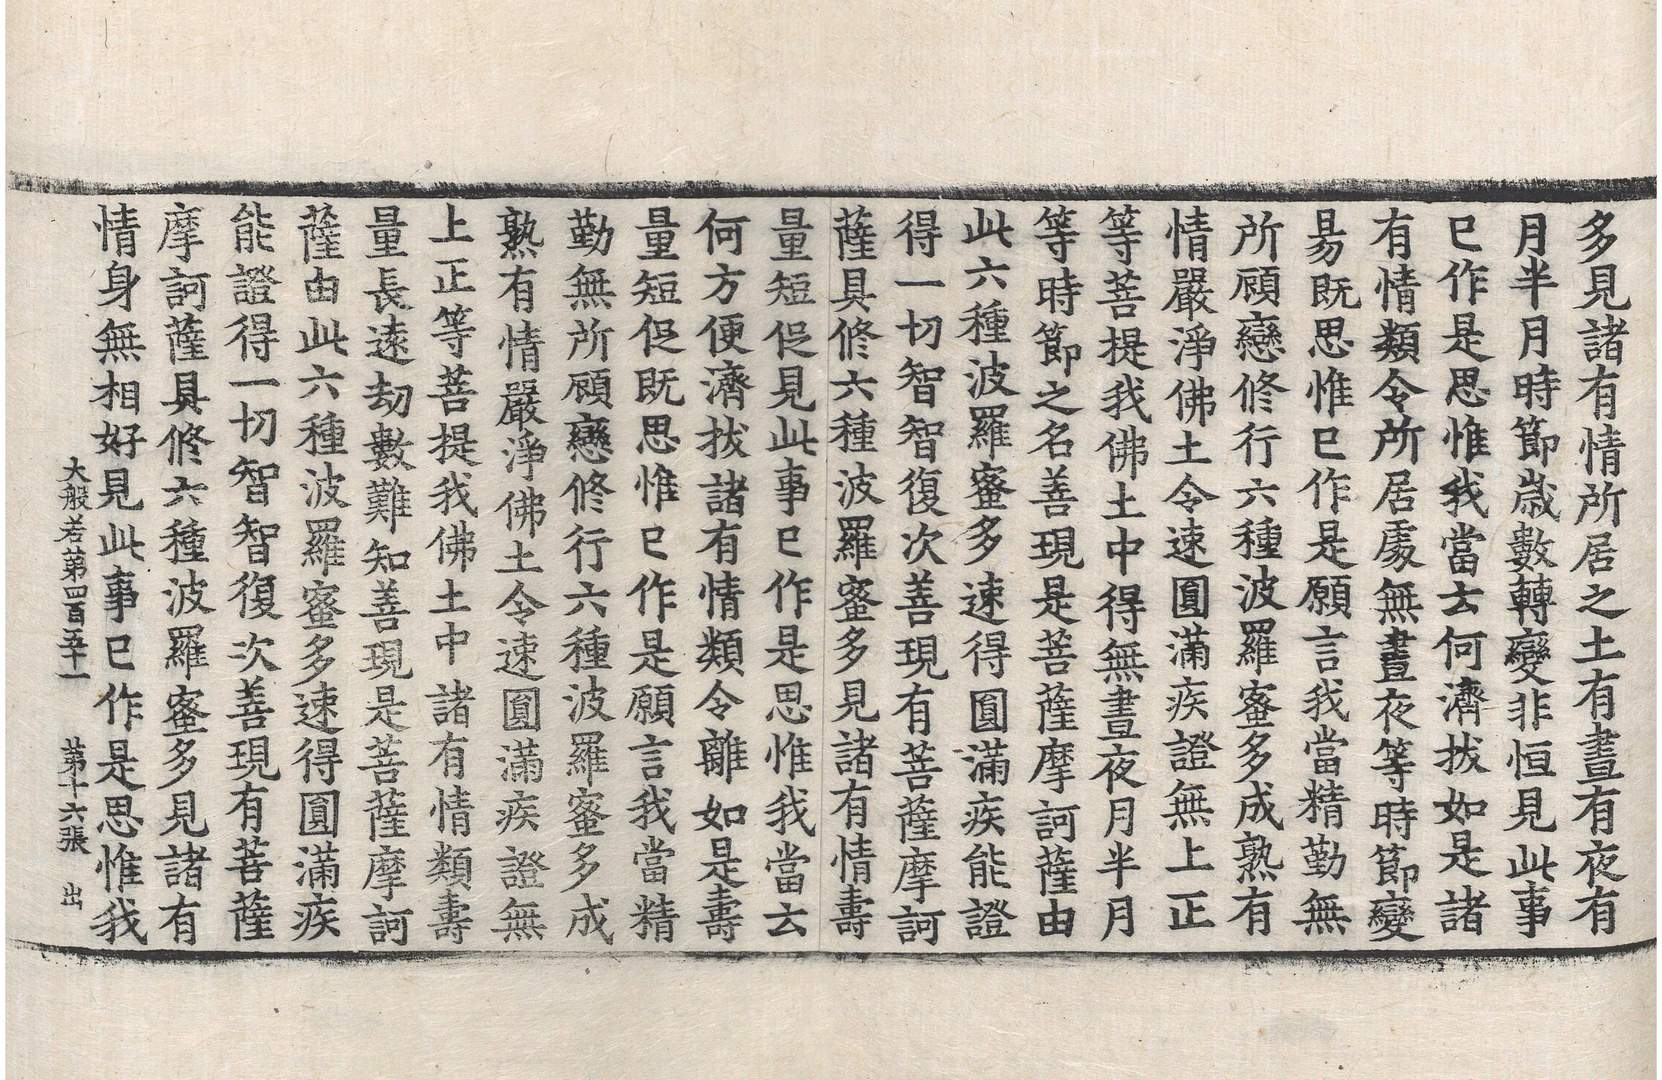 多見諸有情所居之土有晝有夜有
月半月時節歲數轉變非恒見此事
已作是思惟我當云何濟拔如是諸
有情類令所居處無晝夜等時節變
易既思惟已作是願言我當精勤無
所顧戀修行六種波羅蜜多成熟有
情嚴淨佛土令速圓滿疾證無上正
等菩提我佛土中得無晝夜月半月
等時節之名善現是菩薩摩訶薩由
此六種波羅蜜多速得圓滿疾能證
得一切智智復次善現有菩薩摩訶
薩具修六種波羅蜜多見諸有情壽
量短促見此事已作是思惟我當云
何方便濟拔諸有情類令離如是壽
量短促既思惟已作是願言我當精
勤無所顧戀修行六種波羅蜜多成
熟有情嚴淨佛土令速圓滿疾證無
上正等菩提我佛土中諸有情類壽
量長遠劫數難知善現是菩薩摩訶
薩由此六種波羅蜜多速得圓滿疾
能證得一切智智復次善現有菩薩
摩訶薩具修六種波羅蜜多見諸有
情身無相好見此事已作是思惟我
大般若第四百五十一 第十六張 出